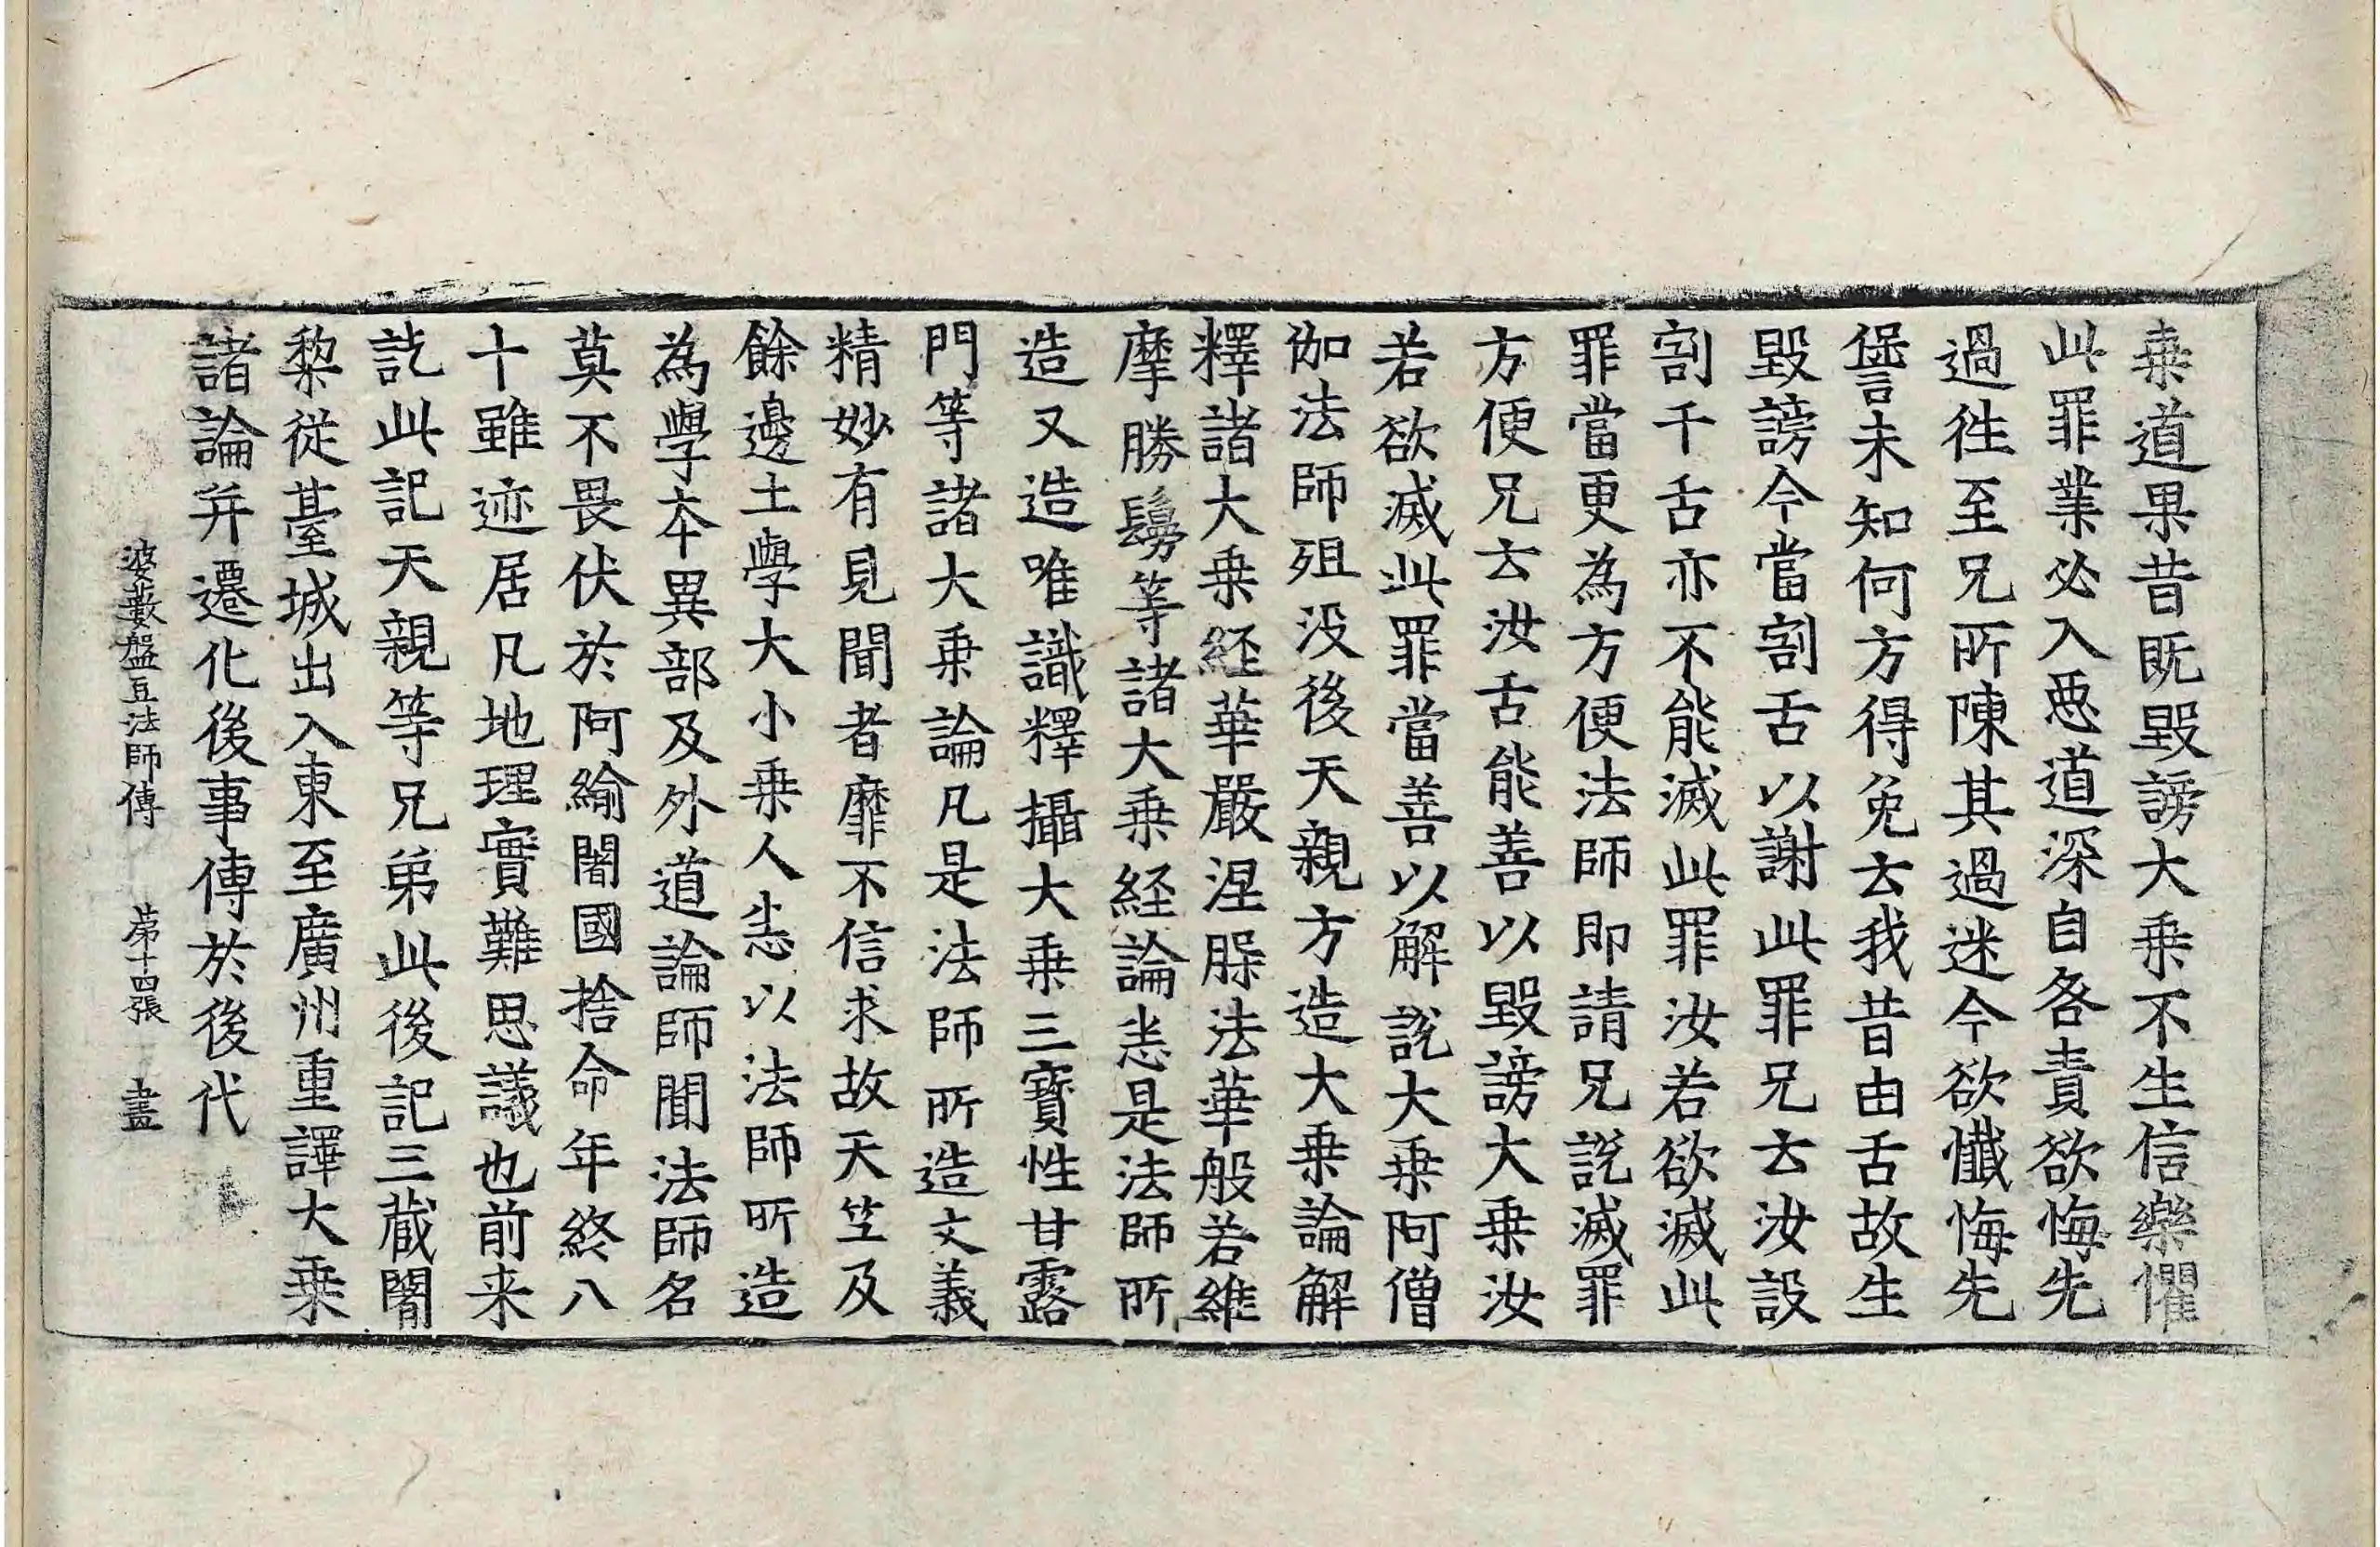 乗道果昔既毀謗大乗不生信樂懼
此罪業必入惡道深自咎責欲悔先
過徃至兄所陳其過迷今欲懺悔先
𠎝未知何方得免云我昔由舌故生
毀謗今當割舌以謝此罪兄云汝設
割千舌亦不能滅此罪汝若欲滅此
罪當更為方便法師即請兄說滅罪
方便兄云汝舌能善以毀謗大乗汝
若欲滅此罪當善以解說大乗阿僧
伽法師殂没後天親方造大乗論解
釋諸大乗経華嚴涅槃法華般若維
摩勝鬘等諸大乗経論悉是法師所
造又造唯識釋攝大乗三寶性甘露
門等諸大乗論凡是法師所造文義
精妙有見聞者靡不信求故天竺及
餘邊土學大小乗人悉以法師所造
為學本異部及外道論師聞法師名
莫不畏伏於阿緰闍國捨命年終八
十雖迹居凡地理實難思議也前来
訖此記天親等兄弟此後記三蔵闍
黎從臺城出入東至廣州重譯大乗
諸論并遷化後事傳於後代
婆藪盤豆法師傳　第十四張　畫